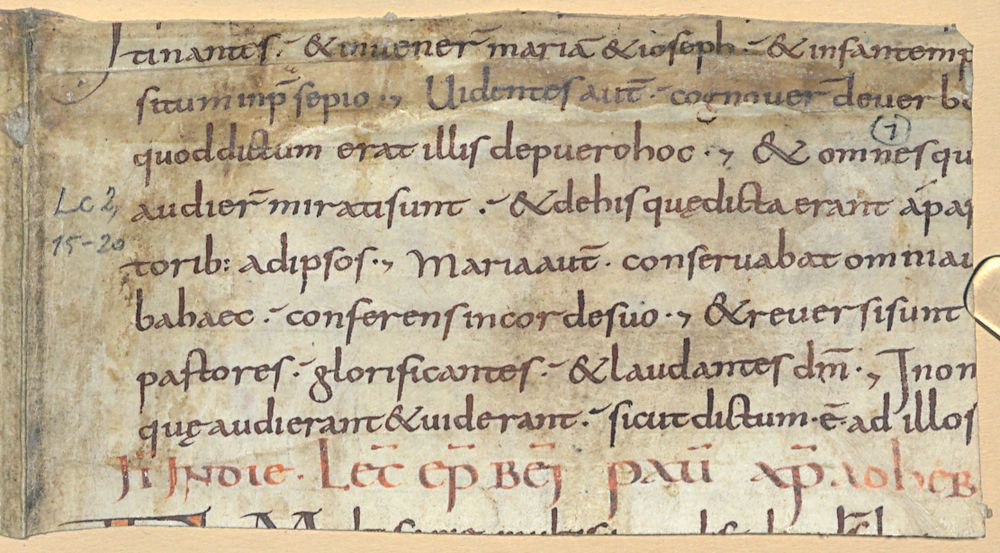 tinantes · & invener̄ mariā & ioseph · & infantem
situm inp̄sepio · Uidentes aut̄ · cognover̄ de verb
(7)
quod dictum erat illis de puero hoc · & omnes qu
Lc 2,
audier̄ mirati sunt · & de his quę dicta erant a pas
15-20
torib: ad ipsos · Maria aut̄ · conservabat omnia
ba haec · conferens in corde suo · & reversi sunt
pastores · glorificantes · & laudantes dm̄ · In om
quę audierant & uiderant · sicut dictum · ē · ad illos
IN DIE · Lec̄ ep̄ BEĪ PAULI AP̄ AD HEB